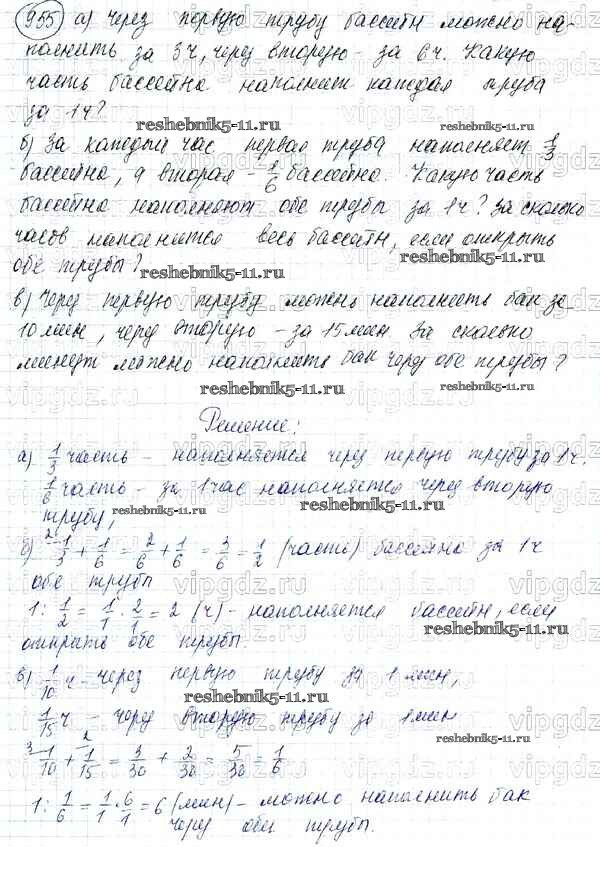 955 а) Через первую трубу бассейн можно на-
полнить за 3ч, через вторую - за 6ч. Какую
часть бассейна наполнит каждая труба
за 1ч?
reshebnik5-11.ru
reshebnik5-11.ru
б) За каждый час первая труба наполняет 1/3
бассейна, а вторая - 1/6 бассейна. Какую часть
бассейна наполняют обе трубы за 1ч? За сколько
часов наполнится весь бассейн, если открыть
обе трубы?
reshebnik5-11.ru
reshebnik5-11.ru
в) Через первую трубу можно наполнить бак за
10 мин, через вторую - за 15 мин За сколько
минут можно наполнить бак через обе трубы?
reshebnik5-11.ru
reshebnik5-11.ru
Решение:
а) 1/3 часть - наполняется через первую трубу за 1ч.
1/6 часть - за 1 час наполняется через вторую
трубу,
reshebnik5-11.ru
reshebnik5-11.ru
б) 2 1/3 + 1/6 = 2/6 + 1/6 = 3/6 = 1/2 (части) бассейна за 1ч
обе трубы
1 : 1/2 = 1/1 · 2/1 = 2 (ч) - наполняется бассейн, если
reshebnik5-11.ru
открыть обе трубы.
в) 1/10 ч - через первую трубу за 1 мин,
reshebnik5-11.ru
1/15 ч - через вторую трубу за 1 мин
3 1/10 + 2 1/15 = 3/30 + 2/30 = 5/30 = 1/6
1 : 1/6 = 1/1 · 6/1 = 6 (мин) - можно наполнить бак
через обе трубы.
vipgdz.ru